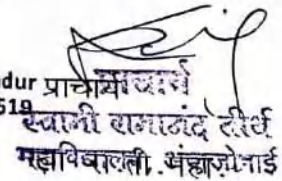 dur प्राचार्य
519
स्वामी रामानंद तीर्थ
महाविद्यालय, अंबाजोगाई